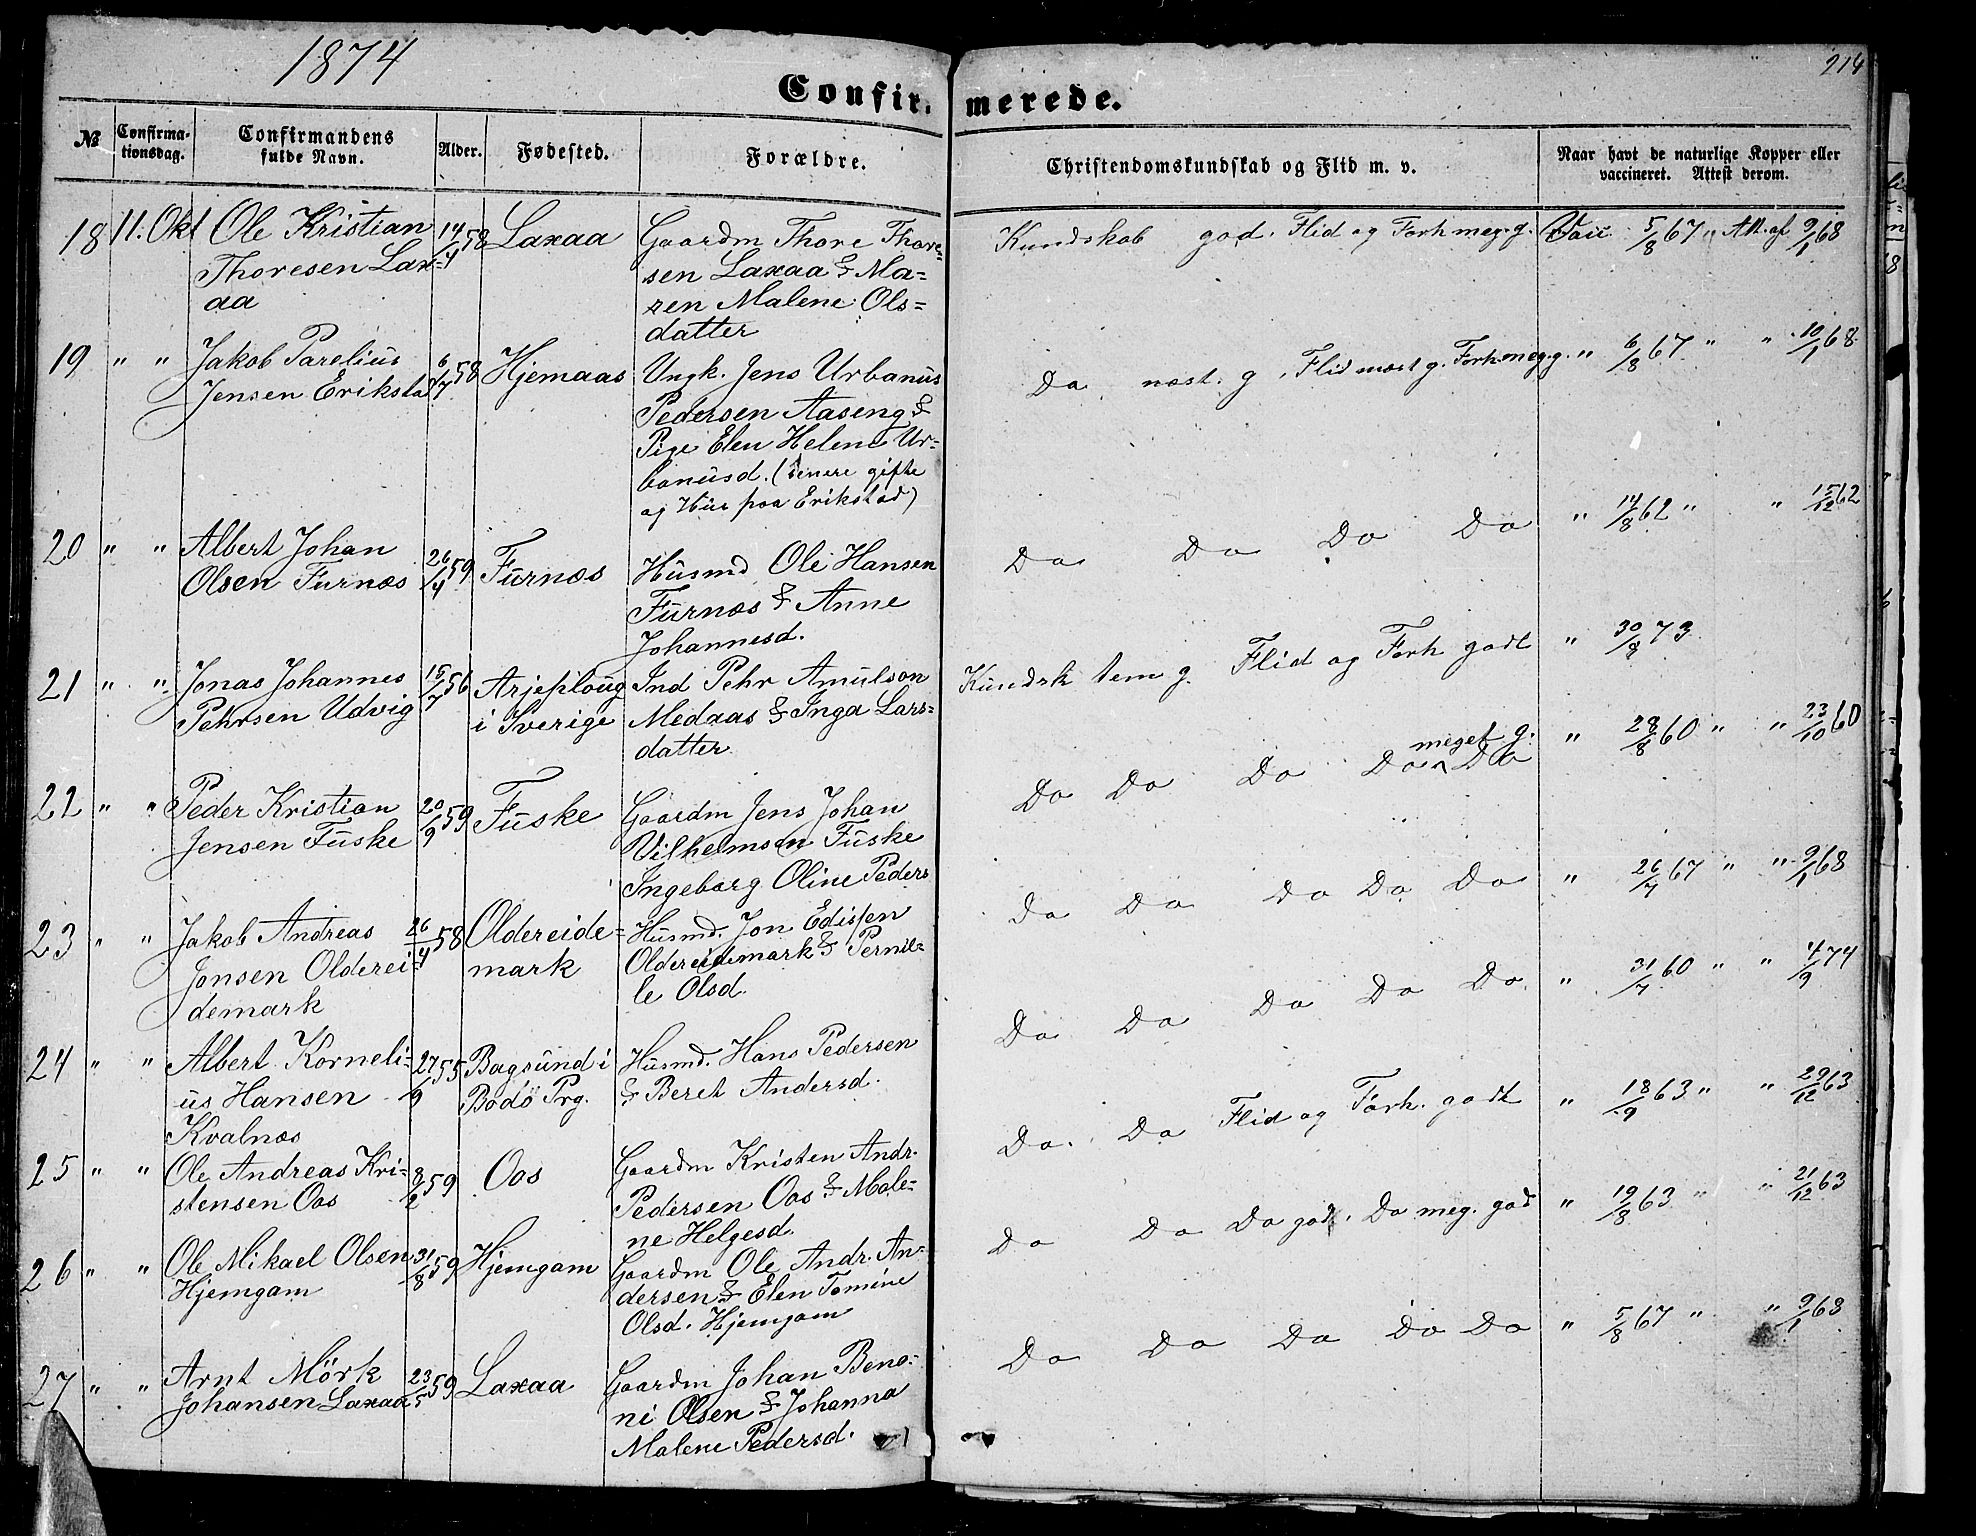 1874
214
Confirmerede.
No
Confirmationsdag.
Confirmandens fulde Navn.
Alder.
Fødested.
Forældre.
Christendomskundskab og Flid m. v.
Naar havt de naturlige Kopper eller vaccineret. Attest derom.
18 11. Okt Ole Kristian 14/4 58 Laxaa Gaardm Thore Thore- Kundskab god. Flid og Forh meg. g. Vacc 5/8 67 " Att. af 9/1 68
Thoresen Lax- sen Laxaa & Ma-
aa ren Malene Ols-
datter
19 " " Jakob Parelius 6/7 58 Hjemaas Ungk. Jens Urbanus Do næst. g. Flid næst g. Forh. meg. g. " 6/8 67 " " 10/1 68
Jensen Erikstad Pedersen Aaseng &
Pige Elen Helene Ur-
banusd. (senere gifte
og Hus paa Erikstad)
20 " " Albert Johan 26/4 59 Furnæs Husmd Ole Hansen Do Do Do Do " 14/8 62 " " 15/12 62
Olsen Furnæs Furnæs & Anne
Johannesd.
21 " " Jonas Johannes 15/7 56 Arjeploug Ind Pehr Amulson Kundsk tem g. Flid og Forh godt " 30/8 73
Pehrsen Udvig i Sverige Medaas & Inga Lars-
datter
22 " " Peder Kristian 20/9 59 Fuske Gaardm Jens Johan Do Do Do Do meget g. Do " 28/8 60 " " 23/10 60
Jensen Fuske Vilhelmsen Fuske
Ingeborg Oline Peders
23 " " Jakob Andreas 26/4 58 Oldereide- Husmd. Jon Edissen Do Do Do Do Do " 26/7 67 " " 9/1 68
Jonsen Olderei- mark Oldereidemark & Pernil-
demark le Olsd.
24 " " Albert Korneli- 27/9 55 Bagsund i Husmd. Hans Pedersen Do Do Do Do Do " 31/7 60 " " 4/9 74
us Hansen Bodö Prg. & Beret Andersd.
Kvalnæs
25 " " Ole Andreas Kri- 8/2 59 Oos Gaardm Kristen Andr. Do. Do Flid og Forh. godt " 18/9 63 " " 29/12 63
stensen Oos Pedersen Oos & Male-
ne Helgesd.
26 " " Ole Mikael Olsen 31/8 59 Hjemgam Gaardm Ole Andr. An- Do Do Do god. Do meg. god " 19/8 63 " " 21/12 63
Hjemgam dersen & Elen Tomine
Olsd. Hjemgam
27 " " Arnt Mörk 23/5 59 Laxaa Gaardm Johan Beno- Do Do Do Do Do " 5/8 67 " " 9/1 68
Johansen Laxaa ni Olsen & Johanna
Malene Pedersd.